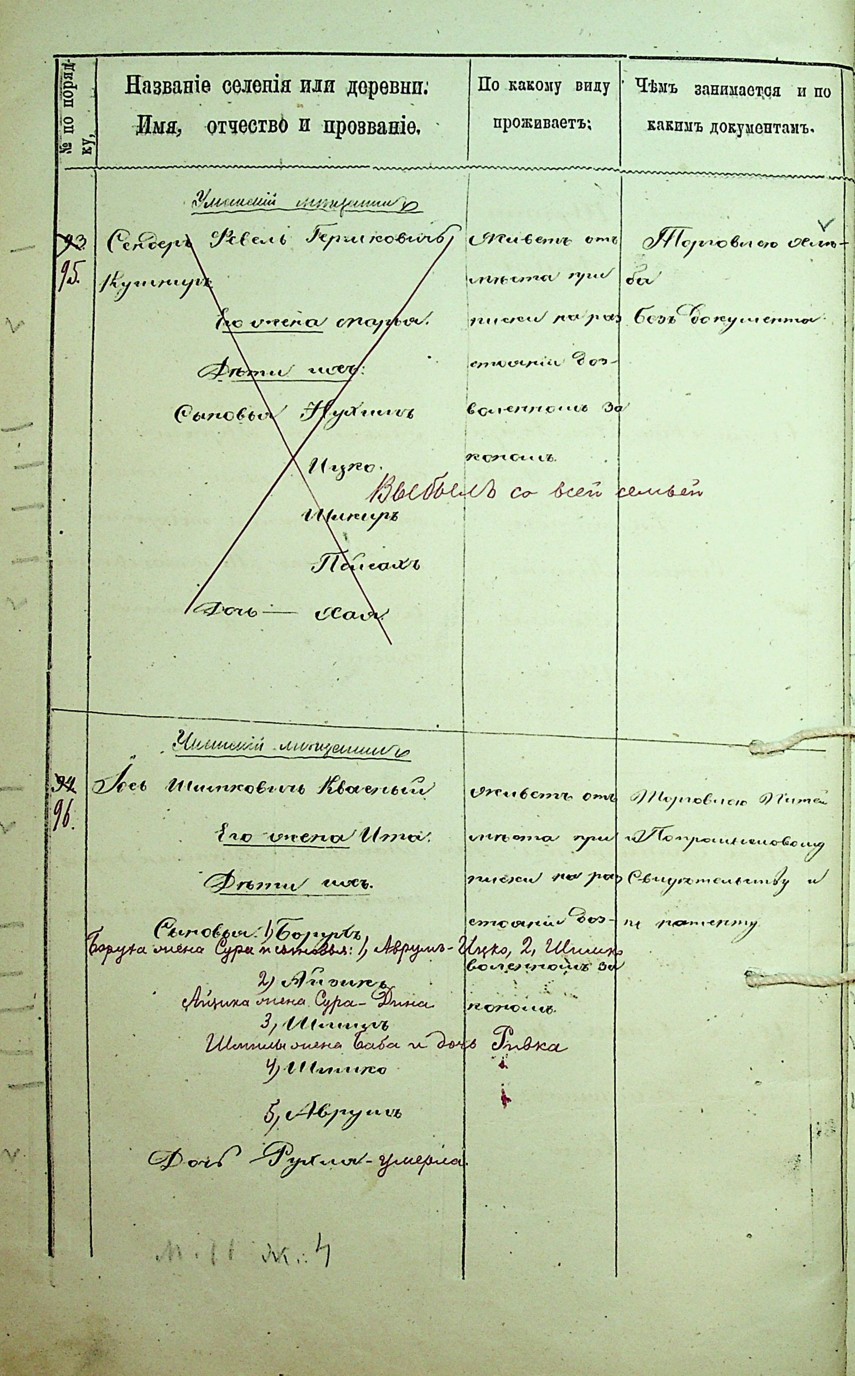 № по поряд-
ку,
Названіе селенія или деревни.
Имя, отчество и прозваніе.
По какому виду
проживаетъ:
Чѣмъ занимается и по
какимъ документамъ.
Уманскій мѣщанинъ
93
95.
Сендеръ Фвель Гершковичъ
Кушниръ
Его жена Марья.
Дѣти ихъ:
Сыновья Нухимъ
Ицко.
Шикиръ
Пейсахъ
Дочь — Хая
Живетъ отъ
мѣста при
писки на раз
стояніи доз-
воленномъ за
кономъ.
Торговлею хлѣ-
ба
безъ документа
Выбылъ со всей семьей
Уманскій мѣщанинъ
94
96.
Іось Шимковичъ Квасный
Его жена Ита.
Дѣти ихъ.
Сыновья: 1) Борухъ
Боруха жена Сура и сыновья: 1, Аврумъ-Ицко, 2, Шлико
2) Айзикъ
Айзика жена Сура-Дина
3, Шмилъ
Шмилы жена Баба и дочь Ривка
4) Шмико
5, Аврумъ
Дочь Рухля - умерла.
Живетъ отъ
мѣста при
писки на раз
стояніи доз-
воленномъ за
кономъ.
Торговлею Питей
Свидѣтельству и
патенту
М. 11 Ж. 4